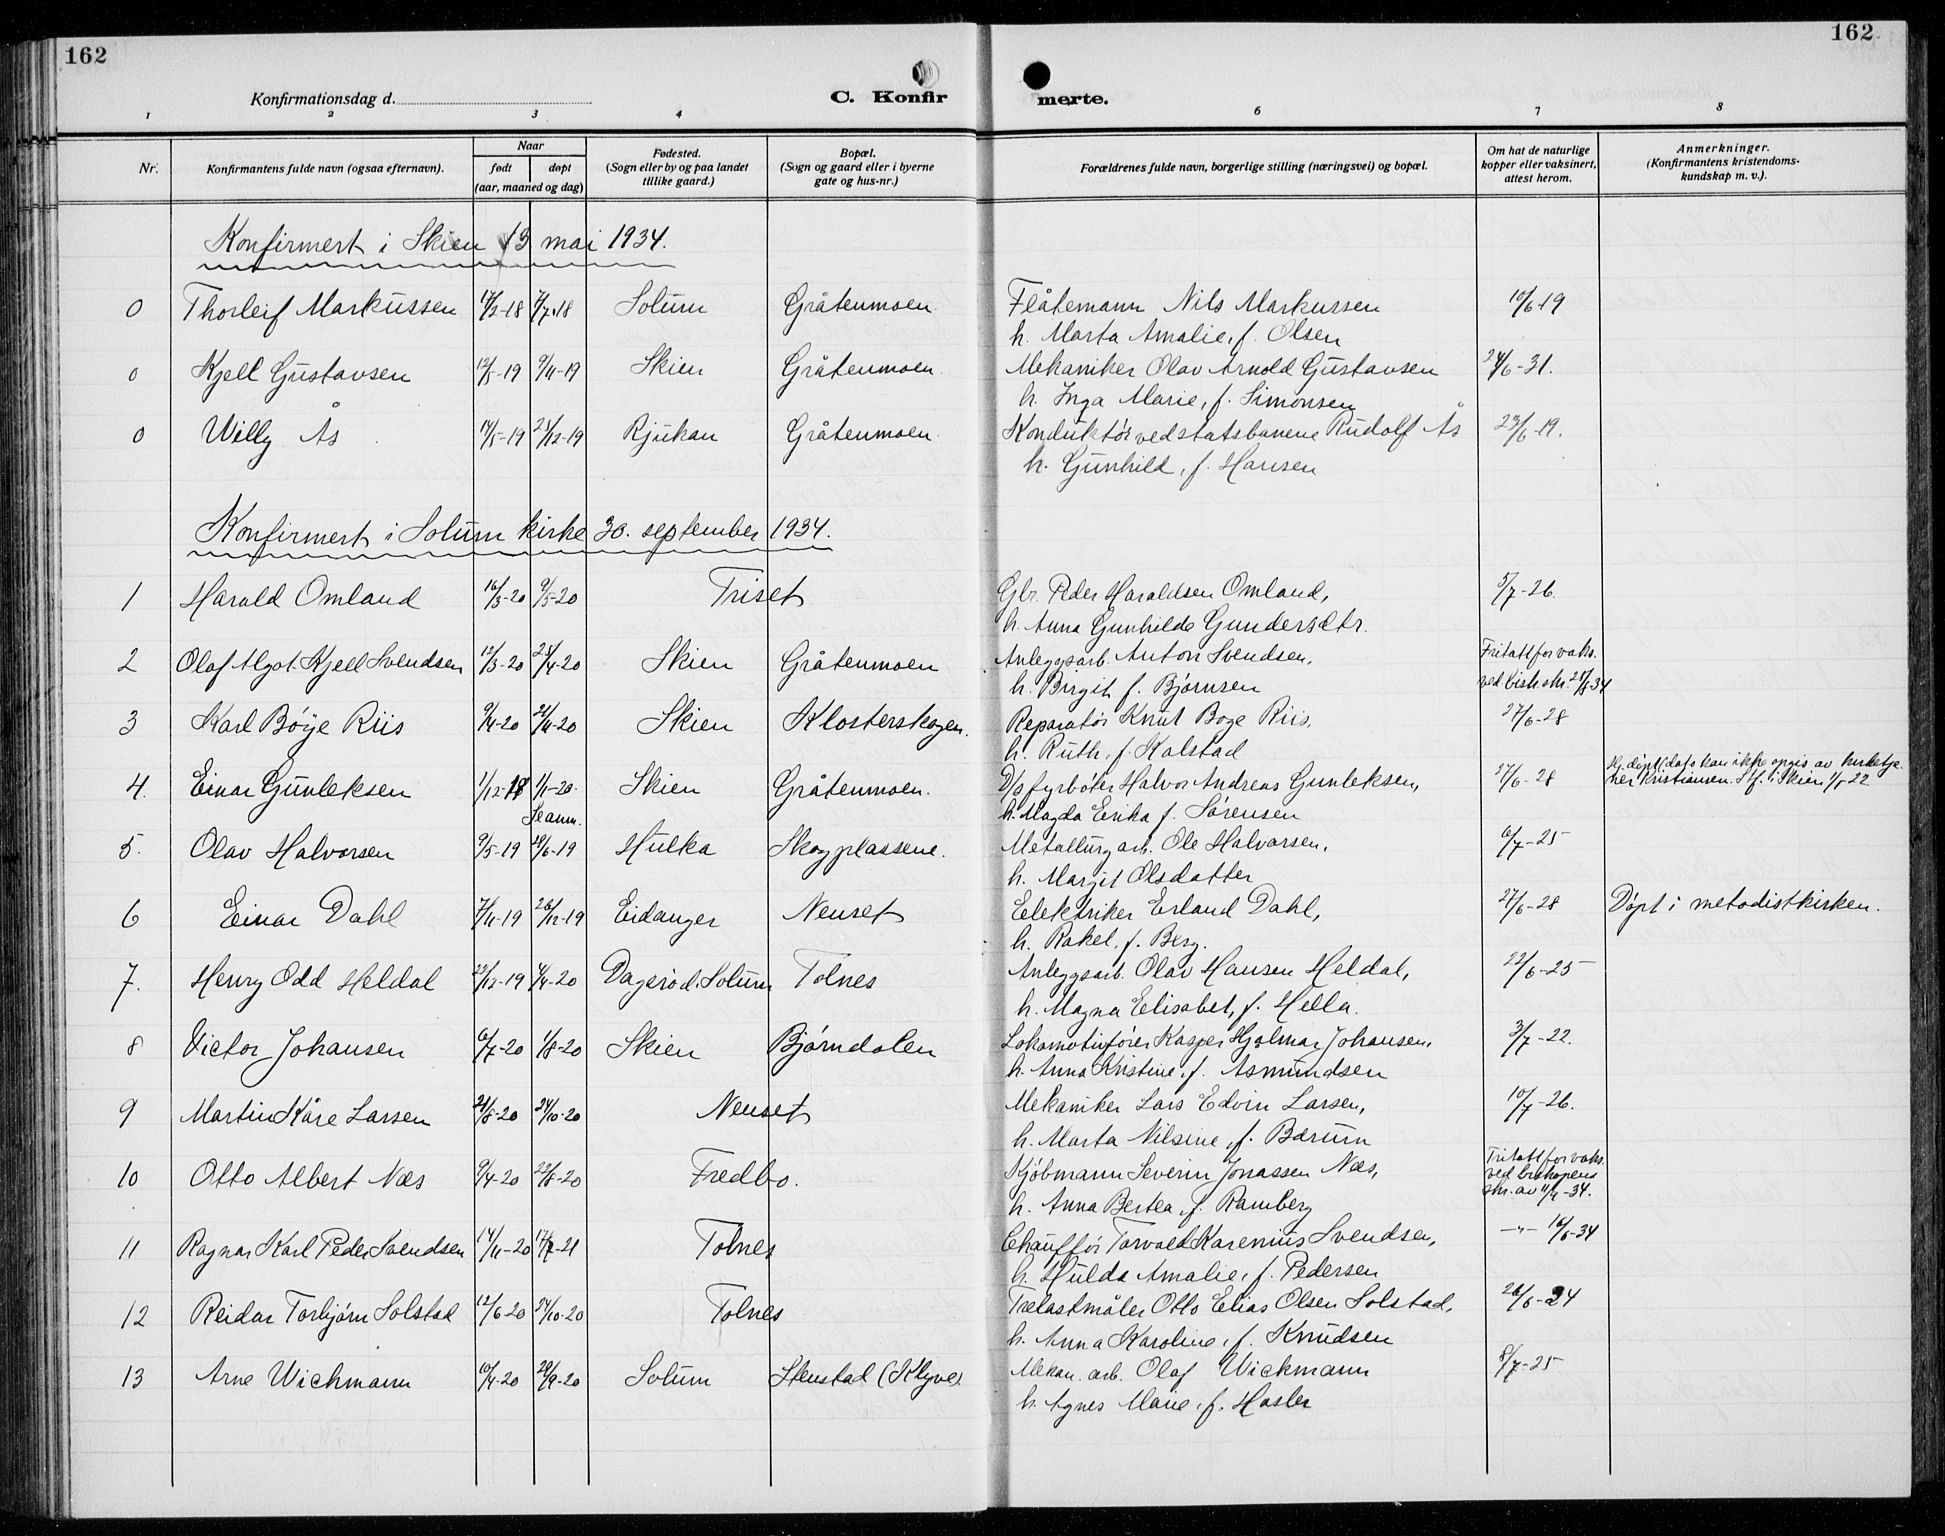 162
162
Konfirmationsdag d.
C. Konfir
merte.
1 2 3 4 6 7 8
Nr.
Konfirmantens fulde navn (ogsaa efternavn).
Naar
født døpt
(aar, maaned og dag)
Fødested.
(Sogn eller by og paa landet
tillike gaard.)
Bopæl.
(Sogn og gaard eller i byerne
gate og hus-nr.)
Forældrenes fulde navn, borgerlige stilling (næringsvei) og bopæl.
Om hat de naturlige
kopper eller vaksinert,
attest herom.
Anmerkninger.
(Konfirmantens kristendoms-
kundskap m. v.).
Konfirmert i Skien 13 mai 1934.
0 Thorleif Markussen 17/2-18 7/7-18 Solum Gråtenmoen Flåtemann Nils Markussen 10/6-19
h. Marta Amalie, f. Olsen
0 Kjell Gustavsen 12/5-19 9/11-19 Skien Gråtenmoen Mekaniker Olav Arnold Gustavsen 24/6-31.
h. Inga Marie, f. Simonsen
0 Willy Ås 14/5-19 21/12-19 Rjukan Gråtenmoen Konduktør ved statsbanene Rudolf Ås 23/6-19.
h. Gunhild, f. Hansen
Konfirmert i Solum kirke 30. september 1934.
1 Harald Omland 16/3-20 9/5-20 Triset Gbr. Peder Haraldsen Omland, 5/7-26.
h. Anna Gunhilde Gundersdtr.
2 Olaf Algot Kjell Svendsen 12/3-20 24/4-20 Skien Gråtenmoen Anleggsarb. Anton Svendsen, Fritatt for vaks.
h. Birgit f. Bjørnsen ved bisk. skr.
3 Karl Böije Riis 9/4-20 21/11-20 Skien Klosterskogen. Reparatør Knut Boge Riis, 27/6-28
h. Ruth, f. Kalstad
4. Einar Gunleksen 1/12-18 1/1-20. Skien Gråtenmoen. D/s fyrbøter Halvor Andreas Gunleksen, 27/6-28 kan ikke opgis av
h. Magda Erika f. Sørensen
5. Olav Halvorsen 9/5-19 29/6-19 Hulka Skogplassene. Metallurg arb. Ole Halvorsen, 6/7-25
h. Margit Olsdatter
6 Einar Dahl 7/11-19 26/12-19 Eidanger Nenset Elektriker Erland Dahl, 27/6-28 Døpt i metodistkirken.
h. Rakel, f. Berg.
7. Henry Odd Heldal 23/12-19 4/4-20 Dagerød. Solum Tolnes Anleggsarb. Olav Hansen Heldal, 22/6-25
h. Magna Elisabet, f. Hella.
8 Victor Johansen 6/7-20 1/8-20 Skien Bjørndalen Lokomotivfører Kasper Hjalmar Johansen, 3/7-22.
h. Anna Kristine, f. Asmundsen
9 Martin Kåre Larsen 21/8-20 24/10-20 Nenset Mekaniker Lars Edvin Larsen, 10/7-26.
h. Marta Nilsine, f. Bærum
10 Otto Albert Næs 9/4-20 22/8-20 Fredbo. Kjøbmann Severin Jonassen Næs, Fritatt for vaks.
ved biskopens
h. Anna Bertea, f. Ramberg skr. av 11/4-34.
11 Ragnar Karl Peder Svendsen 14/11-20 17/7-21 Tolnes Chauffør Torvald Karenius Svendsen, -"- 16/6-34
h. Hulda Amalie, f. Pedersen
12 Reidar Torbjørn Solstad 12/6-20 24/10-20 Tolnes Trelastmåler Otto Elias Olsen Solstad, 26/6-24
h. Anna Karoline, f. Knudsen
13 Arne Wichmann 10/4-20 29/9-20 Solum Stenstad (Klyve) Mekan. arb. Olaf Wickmann 8/7-25
h. Agnes Marie, f. Hasler